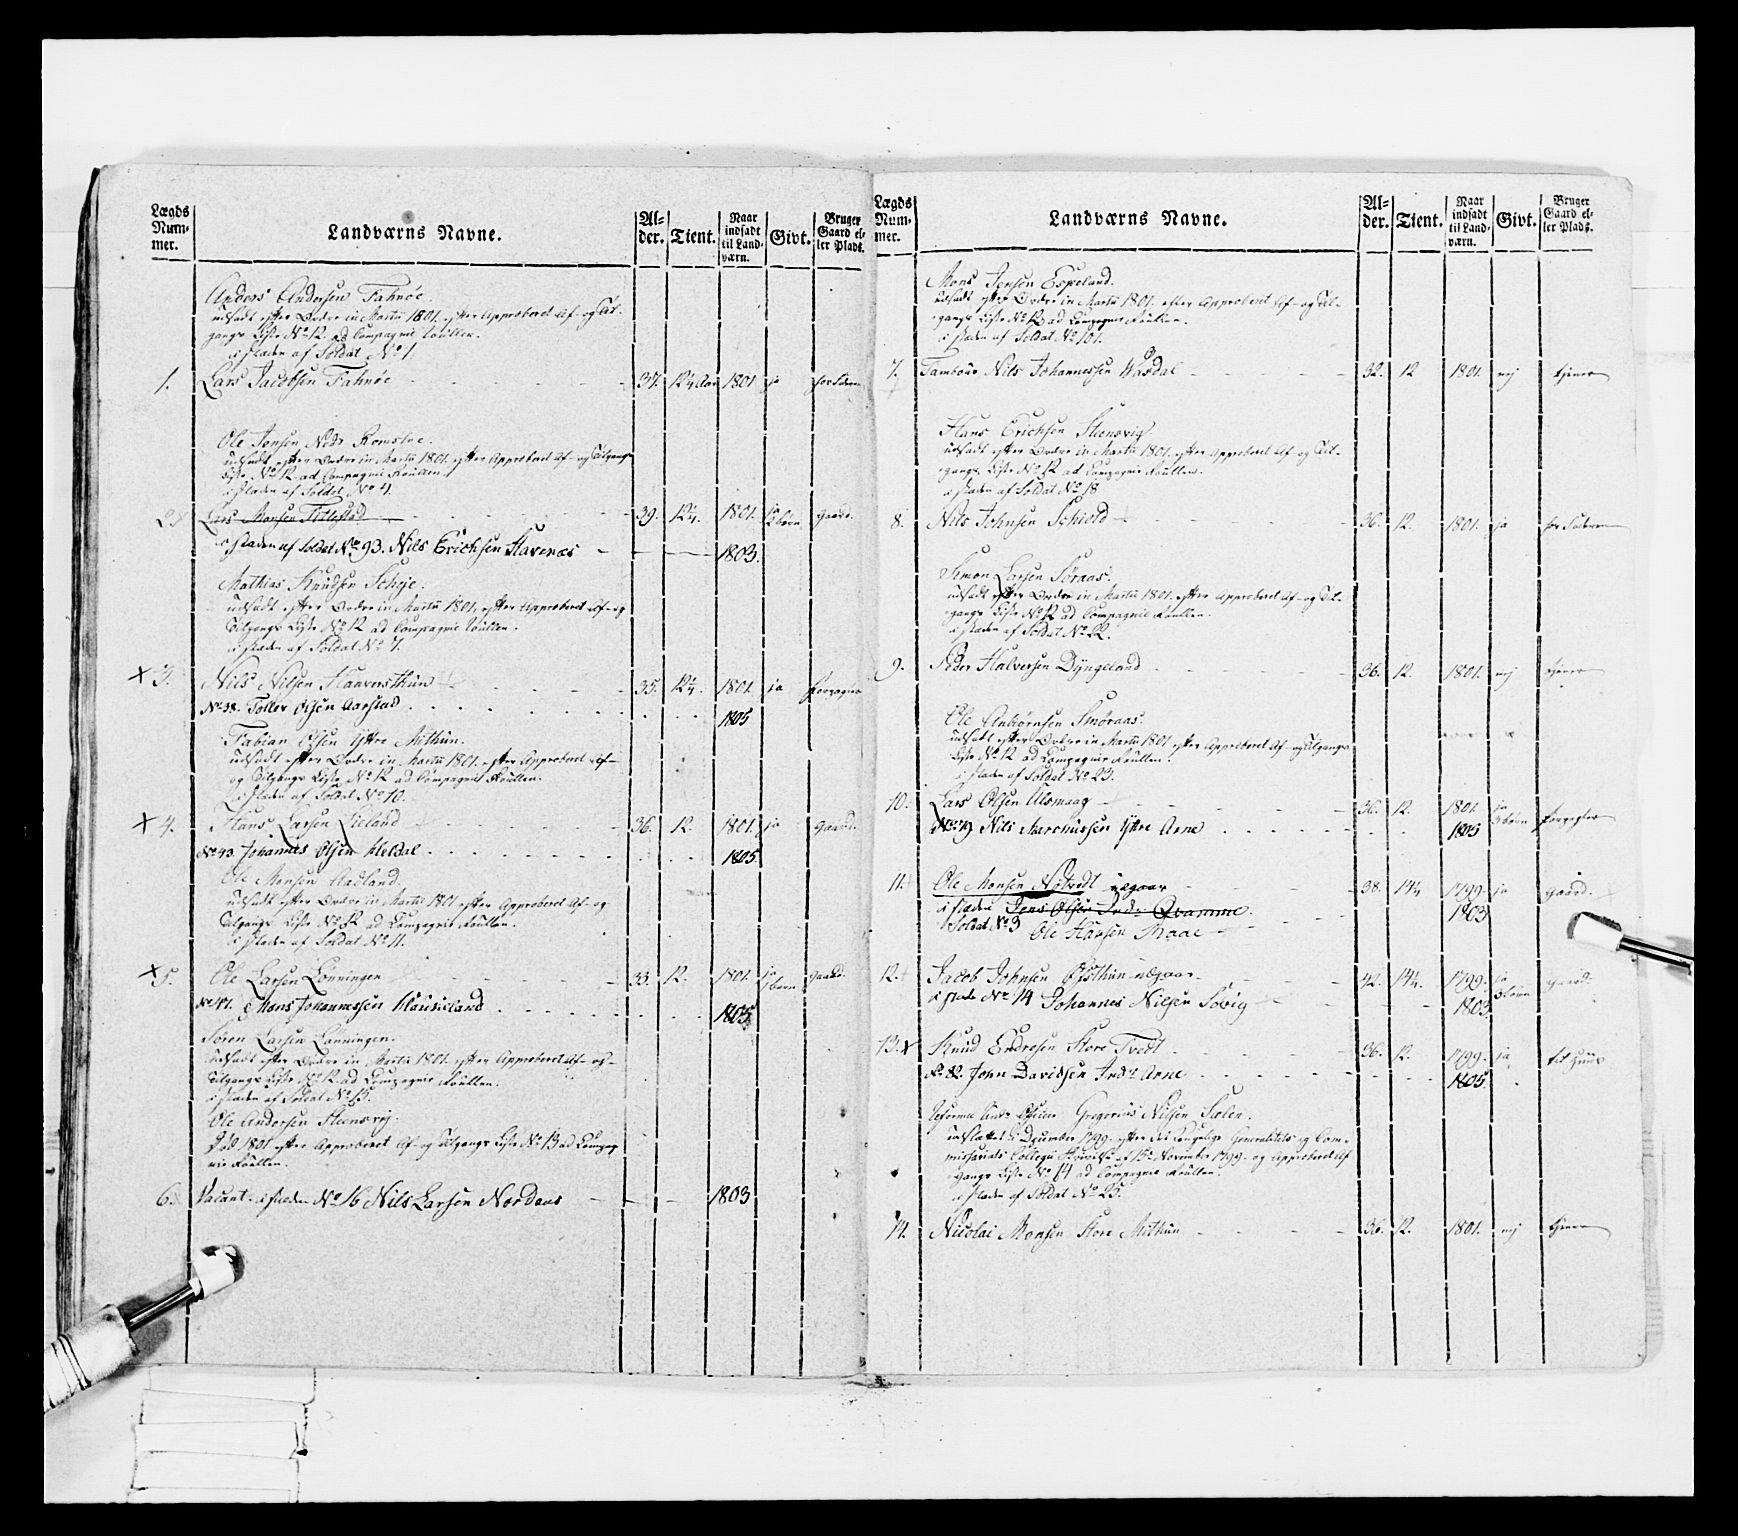 Lægds Num- mer.
Landværns Navne.
Al- der.
Tient.
Naar indsadt til Land- værn.
Givt.
Bruger Gaard el- ler Plads.
Anders Andersen Fahnöe.
udsadt efter Ordre in Martii 1801. efter Approberet Af- og Til-
gangs Liste No 12. ad Compagnie Roullen.
i steden af Soldat No 1.
1. Lars Jacobsen Fahnöe 37. 12¼ Aar 1801 ja
Ole Jensen Nedr Romsloe.
udsadt efter Ordre in Martii 1801. efter Approberet Af- og Tilgangs
Liste No 12. ad Compagnie Roullen.
i steden af Soldat No 4.
2. Lars Monsen Tittestad 39. 12¼. 1801. ja 2 börn gaard.
i steden af Soldat No 93. Nils Erichsen Havenæs 1803.
Mathias Knudsen Scheje.
udsadt efter Ordre in Martii 1801. efter Approberet Af- og
Tilgangs Liste No 12 ad Compagnie Roullen.
i steden af Soldat No 7.
x 3. Nils Nilsen Hanversthun 35. 12¼. 1801. ja
No 38. Toller Olsen Aarstad 1805
Fabian Olsen Yttre Mithun.
udsadt efter Ordre in Martii 1801. efter Approberet Af-
og Tilgangs Liste No 12 ad Compagnie Roullen.
i steden af Soldat No 10.
x 4. Hans Larsen Lieland 36. 12. 1801. ja gaard.
No 43. Johannes Olsen Heldal 1805
Ole Monsen Hadland.
udsadt efter Ordre in Martii 1801 efter Approberet Af- og
Tilgangs Liste No 12. ad Compagnie Roullen.
i steden af Soldat No 11.
x 5. Ole Larsen Lönningen 33. 12. 1801. ja 1 barn gaard.
No 47. Mons Johannessen 1805
Sören Larsen Lönningen.
udsadt efter Ordre in Martii 1801. efter Approberet Af- og
Tilgangs Liste No 12. ad Compagnie Roullen.
i steden af Soldat No 15.
Ole Andersen Steensvej.
1801 efter Approberet Af- og Tilgangs Liste No 13 ad Compag
nie Roullen.
6. Vacant. i steden No 16 Nils Larsen Nordaas 1803
Lægds Num- mer.
Landværns Navne.
Al- der.
Tient.
Naar indsadt til Land- værn.
Givt.
Bruger Gaard el- ler Plads.
Mons Jensen Espeland.
udsadt efter Ordre in Martii 1801. efter Approberet Af- og Til-
gangs Liste No 12 ad Compagnie Roullen.
i steden af Soldat No 101.
7. Tambour Nils Johannessen Wardal 32. 12 1801. nej tjener
Hans Erichsen Steensvig.
udsadt efter Ordre in Martii 1801. efter Approberet Af- og Til-
gangs Liste No 12 ad Compagnie Roullen.
i steden af Soldat No 18
8. Nils Johnsen Schiold 36. 12. 1801. ja
Simon Larsen Söraas.
udsadt efter Ordre in Martii 1801. efter Approberet Af- og Til-
gangs Liste No 12 ad Compagnie Roullen.
i steden af Soldat No 22.
9. Peder Halversen Dyngeland 36. 12. 1801. nej tjener
Ole Anbiörnsen Smöraas.
udsadt efter Ordre in Martii 1801 efter Approberet Af- og Tilgangs
Liste No 12 ad Compagnie Roullen.
i steden af Soldat No 23.
10. Lars Olsen Ulsmaag 36. 12. 1801. ja
No 79 Nils Marchussen Yttre Arne 1805
11. Ole Monsen Nötvedt 38. 14¼ 1799. ja gaard.
i steden Jens Olsen Indr Qvamme. 1803
Soldat No 3 Ole Hansen Maae
12. Jacob Johnsen Östhun 42. 14¼. 1799. ja gaard.
i stede No 14 Johannes Nielsen Sövig 1803.
13. x Knud Endresen Store Tvedt 36. 12. 1799. ja til Huus
No 82. John Davidsen Indr Arne 1805
Gregorius Nilsen Sælen.
udslættet i December 1799. efter det Kongelige Generalitets og Com-
missariats Collegii Skrivelse af 15de November 1799. og Approberet Af
gangs Liste No 14 ad Compagnie Roullen.
i steden af Soldat No 25.
14. Nicolai Monsen Store Mithun 36. 12. 1801. nej tjener